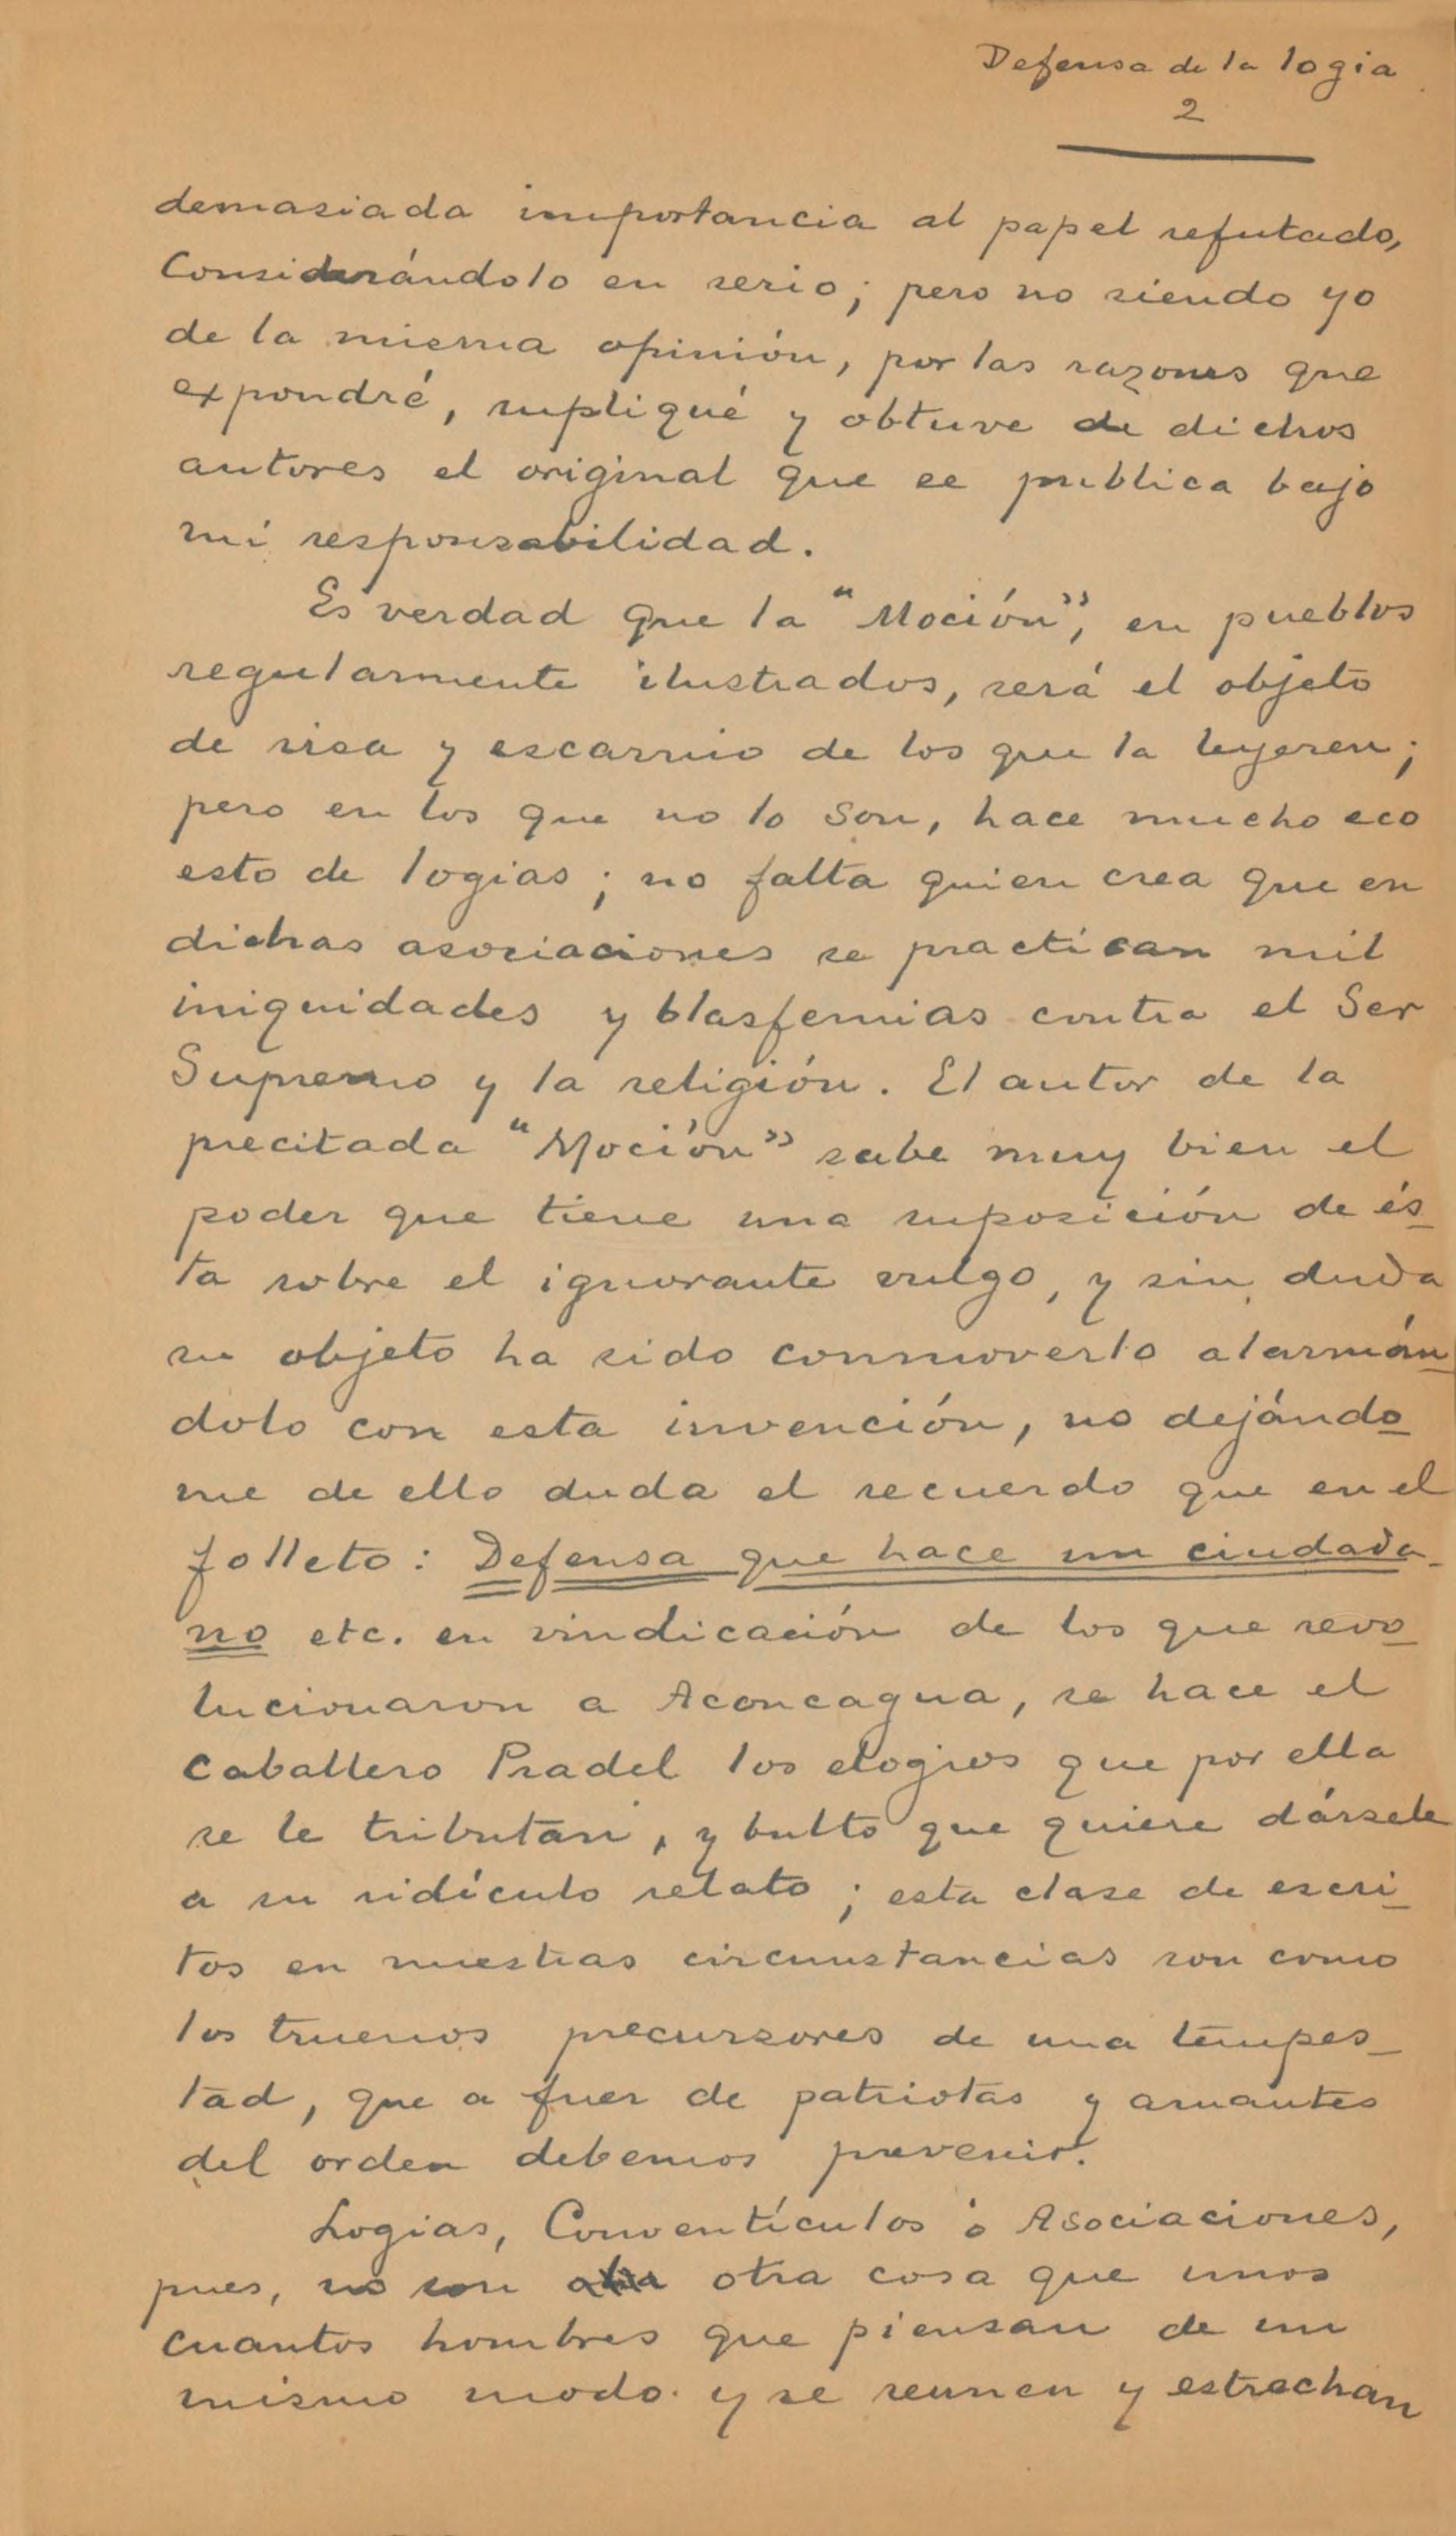 Defensa de la logia
2
demasiada importancia al papel refutado,
Considerándolo en serio; pero no siendo yo
de la misma opinión, por las razones que
expondré, supliqué y obtuve de dichos
autores el original que se publica bajo
mi responsabilidad.
Es verdad que la "Moción", en pueblos
regularmente ilustrados, será el objeto
de risa y escarnio de los que la leyeren;
pero en los que no lo son, hace mucho eco
esto de logias; no falta quien crea que en
dichas asociaciones se practican mil
iniquidades y blasfemias contra el Ser
Supremo y la religión. El autor de la
precitada "Moción" sabe muy bien el
poder que tiene una suposición de és_
ta sobre el ignorante vulgo, y sin duda
su objeto ha sido conmoverlo alarmán_
dolo con esta invención, no dejándo_
me de ello duda el recuerdo que en el
folleto: Defensa que hace un ciudada_
no etc. en vindicación de los que revo_
lucionaron a Aconcagua, se hace el
caballero Pradel los elogios que por ella
se le tributan, y bulto que quiere dársele
a su ridículo relato; esta clase de escri_
tos en nuestras circunstancias son como
los truenos precursores de una tempes_
tad, que a fuer de patriotas y amantes
del orden debemos prevenir.
Logias, Conventículos ó Asociaciones,
pues, no son otra cosa que unos
cuantos hombres que piensan de un
mismo modo y se reunen y estrechan